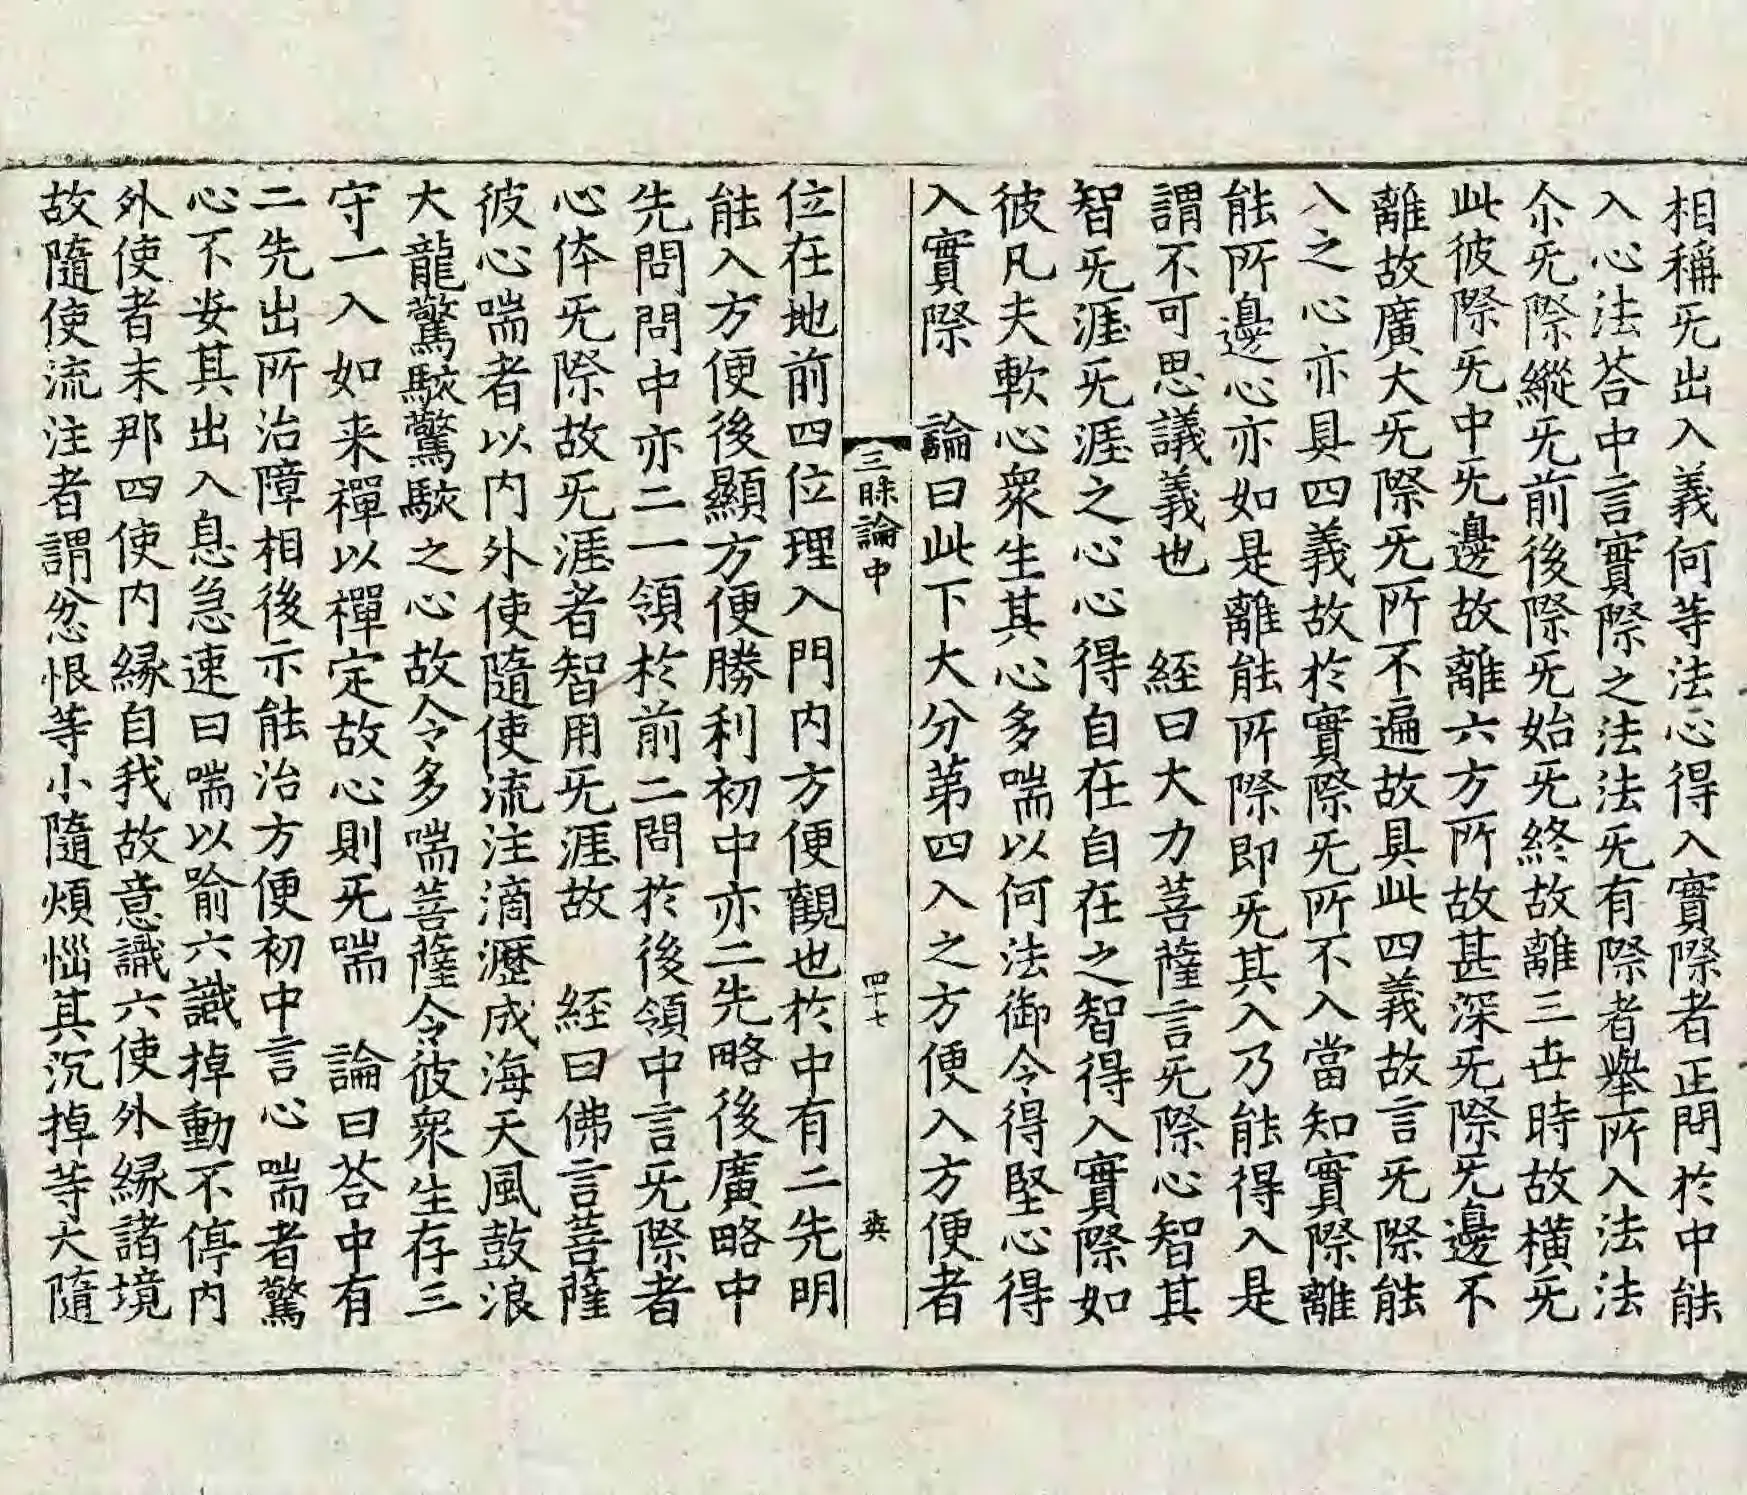 相稱旡出入義何等法心得入實際者正問於中能
入心法荅中言實際之法法旡有際者舉所入法法
尒旡際縱旡前後際旡始旡終故離三世時故橫旡
此彼際旡中旡邊故離六方所故甚深旡際旡邊不
離故廣大旡際旡所不遍故具此四義故言旡際能
入之心亦具四義故於實際旡所不入當知實際離
能所邊心亦如是離能所際即旡其入乃能得入是
謂不可思議義也　經曰大力菩薩言旡際心智其
智旡涯旡涯之心心得自在自在之智得入實際如
彼凡夫軟心衆生其心多喘以何法御令得堅心得
入實際　論曰此下大分第四入之方便入方便者
三昧論中　四十七　英
位在地前四位理入門内方便觀也於中有二先明
能入方便後顯方便勝利初中亦二先略後廣略中
先問問中亦二一領於前二問於後領中言旡際者
心体旡際故旡涯者智用旡涯故　經曰佛言菩薩
彼心喘者以内外使隨使流注滴瀝成海天風鼓浪
大龍驚駭驚駭之心故令多喘菩薩令彼衆生存三
守一入如来禪以禪定故心則旡喘　論曰荅中有
二先出所治障相後示能治方便初中言心喘者驚
心不安其出入息急速曰喘以喻六識掉動不停内
外使者末那四使内縁自我故意識六使外縁諸境
故隨使流注者謂忿恨等小隨煩惱其沉掉等大隨